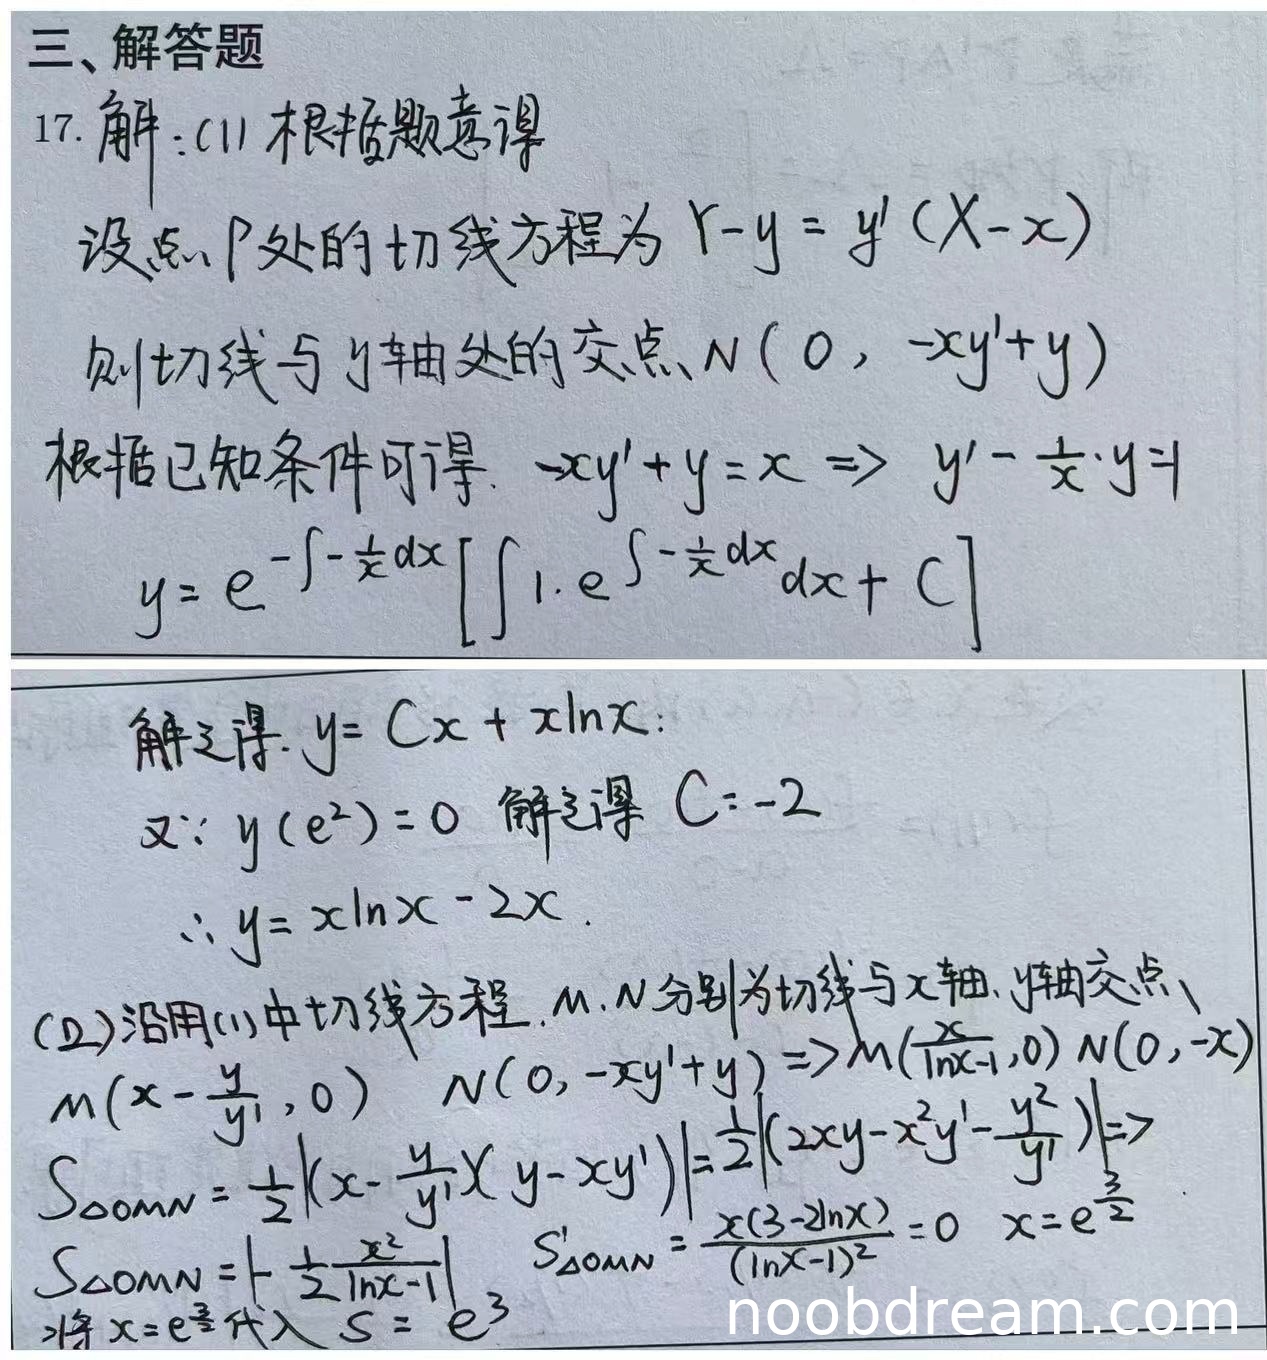 三、解答题
17. 解：(1) 根据题意得
设点P处的切线方程为 Y-y = y'(X-x)
则切线与y轴处的交点N(0, -xy'+y)
根据已知条件可得. -xy'+y=x => y'-\frac{1}{x}·y=-1
y= e^{-∫-\frac{1}{x}dx}[∫1·e^{∫-\frac{1}{x}dx}dx+C]
解之得. y= Cx + xlnx:
又∵ y(e²)=0 解之得 C=-2
∴ y= xlnx-2x.
(2)沿用(1)中切线方程. M.N分别为切线与x轴、y轴交点、
M(x-\frac{y}{y'},0) N(0,-xy'+y) => M(\frac{x}{lnx-1},0) N(0,-x)
S△OMN=\frac{1}{2}|(x-\frac{y}{y'})(y-xy')|=\frac{1}{2}|(2xy-x²y'-\frac{y²}{y'})|=>
S△OMN=|-\frac{1}{2}\frac{x²}{lnx-1}| S'△OMN=\frac{x(3-2lnx)}{(lnx-1)²}=0 x=e^{\frac{3}{2}}
将x=e^{\frac{3}{2}}代入 S= e³
noobdream.com